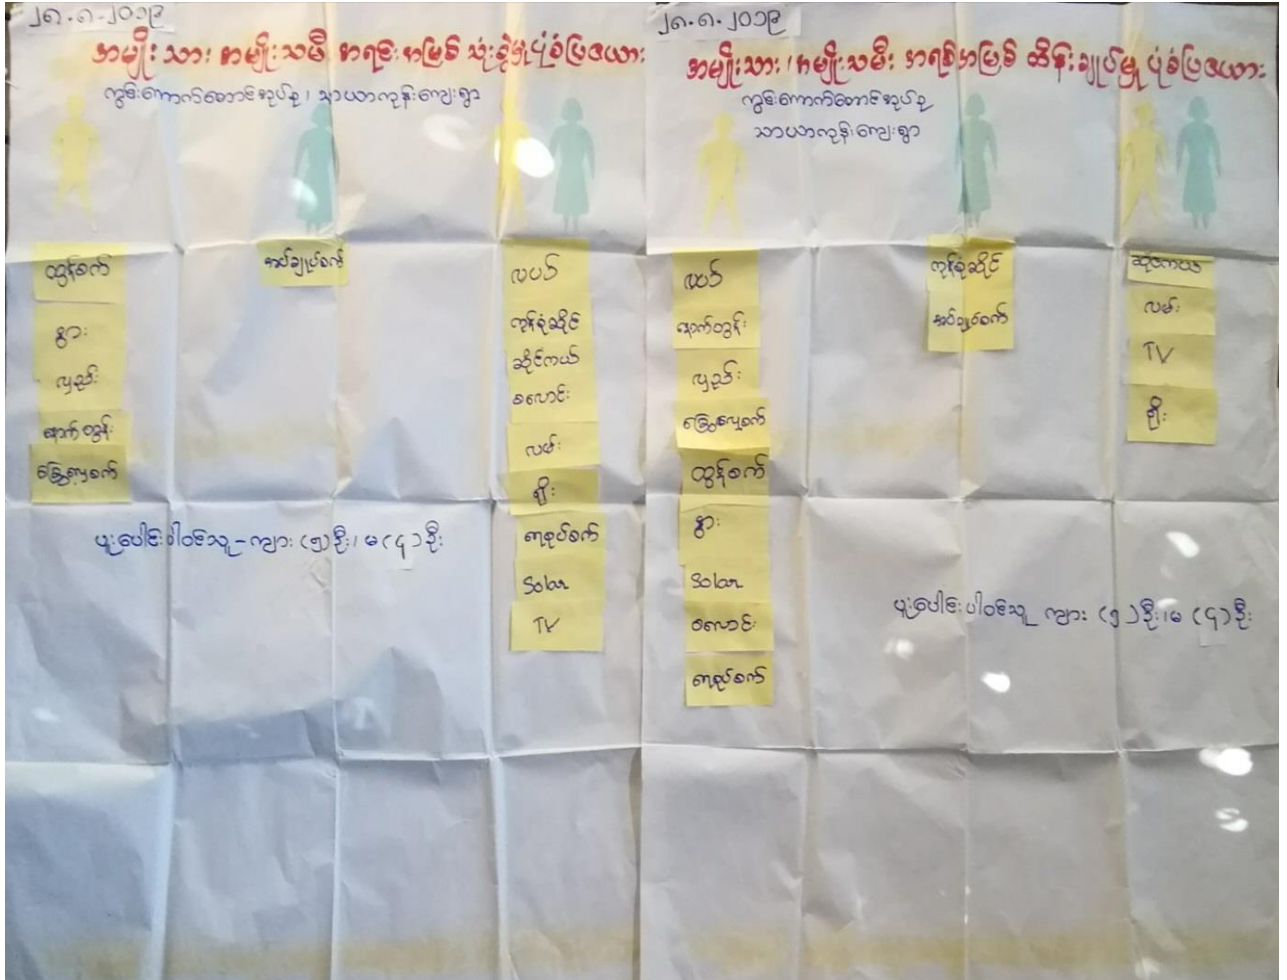 ၂၈.၈.၂၀၁၉
အမျိုးသား အမျိုးသမီး အရင်းအမြစ် သုံးစွဲမှုပုံစံပြဇယား
ကွမ်းကောက်တောင်အုပ်စု၊ သာယာကုန်းကျေးရွာ
ထွန်စက်
နွား
လှည်း
နောက်တွန်း
ခြွေလှေ့စက်
အပ်ချုပ်စက်
လယ်
ကုန်စုံဆိုင်
ဆိုင်ကယ်
စလောင်း
လမ်း
မျိုး
ရေစုပ်စက်
Solar
TV
ပူးပေါင်းပါဝင်သူ-ကျား (၅)ဦး၊ မ(၄)ဦး
၂၈.၈.၂၀၁၉
အမျိုးသား၊ အမျိုးသမီး အရင်းအမြစ် ထိန်းချုပ်မှုပုံစံပြဇယား
ကွမ်းကောက်တောင်အုပ်စု
သာယာကုန်းကျေးရွာ
လယ်
နောက်တွန်း
လှည်း
ခြွေလှေ့စက်
ထွန်စက်
နွား
Solar
စလောင်း
ရေစုပ်စက်
ကုန်စုံဆိုင်
အပ်ချုပ်စက်
ဆိုင်ကယ်
လမ်း
TV
မျိုး
ပူးပေါင်းပါဝင်သူ ကျား (၅)ဦး၊ မ (၄)ဦး